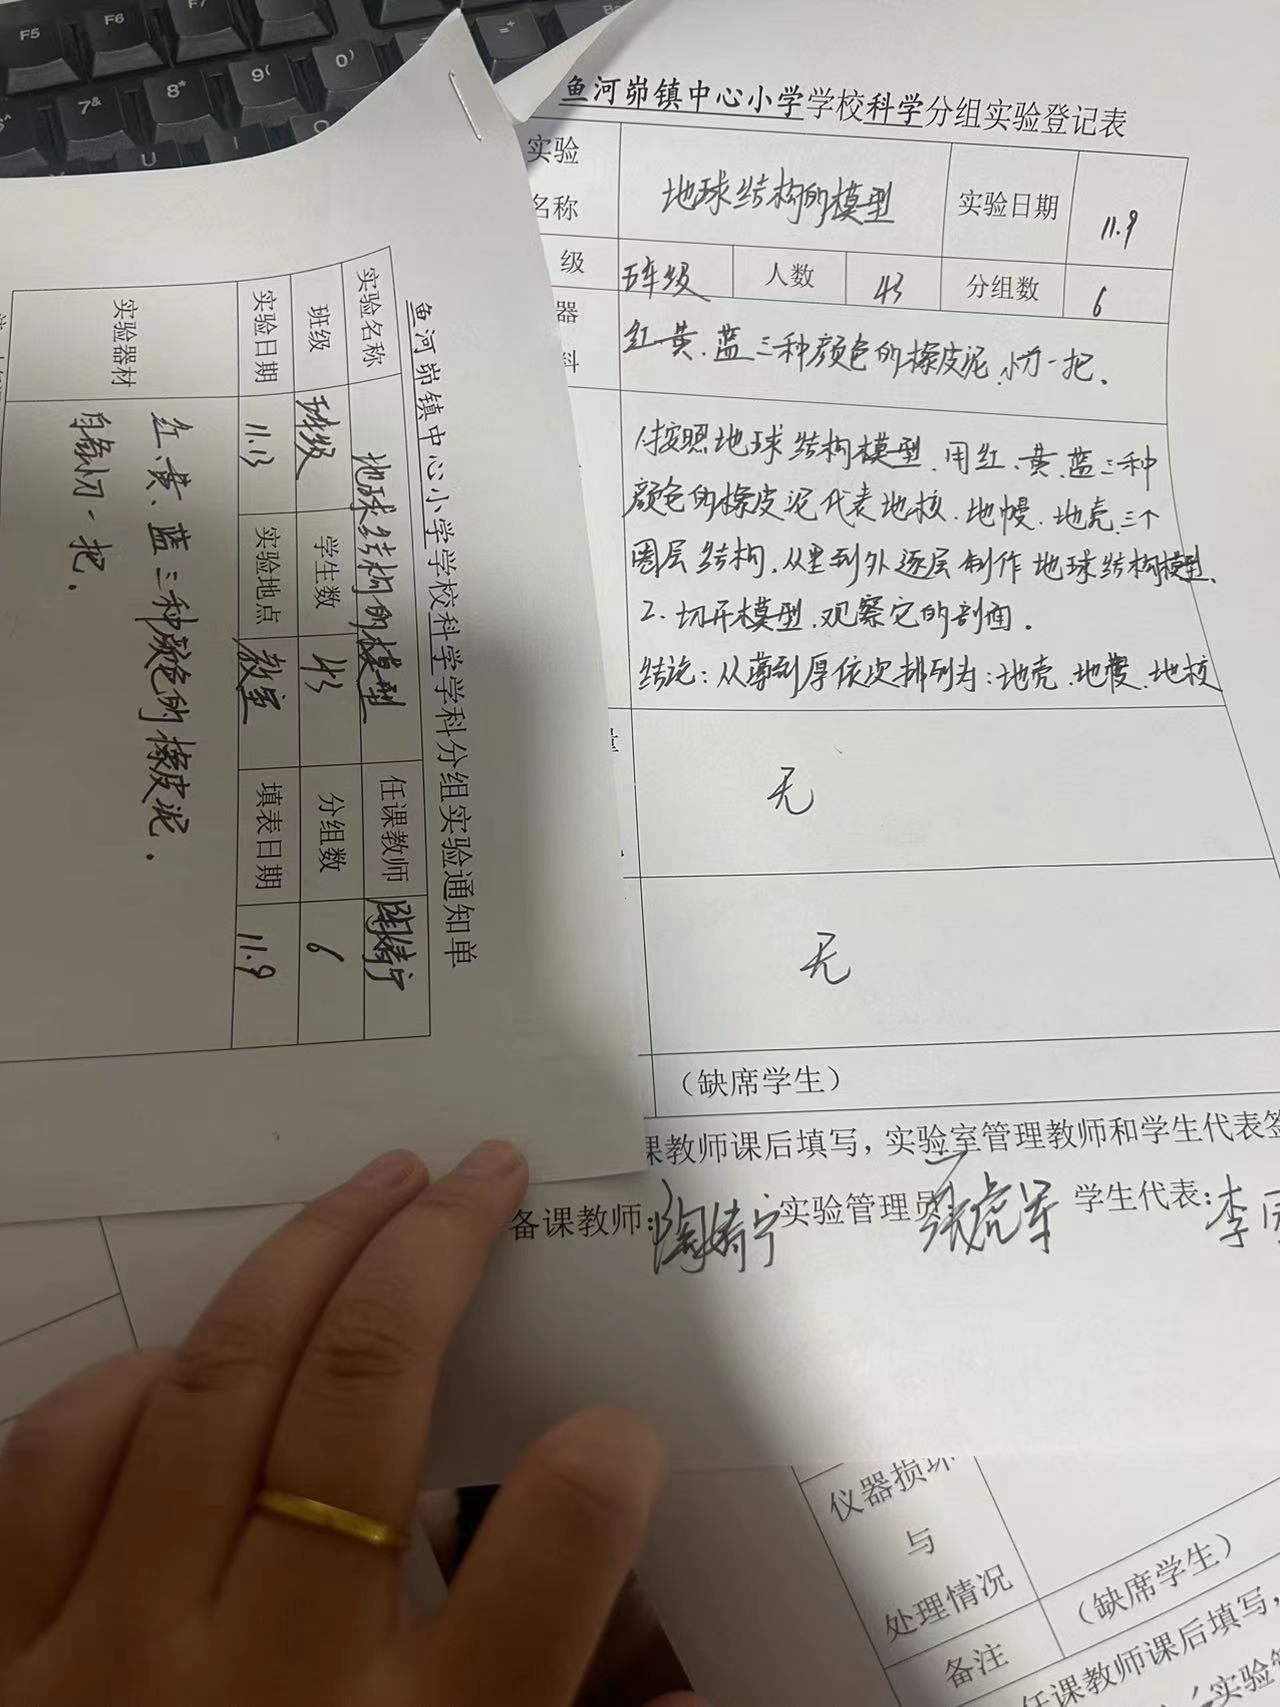 F5
F6
F7
7&
8*
9(
0)
U
鱼河峁镇中心小学学校科学分组实验登记表
实验
名称
地球结构的模型
实验日期
11.9
级
五年级
人数
43
分组数
6
器
料
红、黄、蓝三种颜色的橡皮泥、小刀一把.
1.按照地球结构模型,用红、黄、蓝三种
颜色的橡皮泥代表地核、地幔、地壳三个
圈层结构,从里到外逐层制作地球结构模型.
2.切开模型,观察它的剖面.
结论:从薄到厚依次排列为:地壳、地幔、地核
无
无
(缺席学生)
课教师课后填写,实验室管理教师和学生代表签
备课教师:陶婧宁
实验管理员
张虎军
学生代表:李
鱼河峁镇中心小学学校科学学科分组实验通知单
实验名称
地球结构的模型
任课教师
陶婧宁
班级
五年级
学生数
43
分组数
6
实验日期
11.13
实验地点
教室
填表日期
11.9
实验器材
红、黄、蓝三种颜色的橡皮泥.
一把.
仪器损坏
与
处理情况
备注
(缺席学生)
任课教师课后填写,
实验管